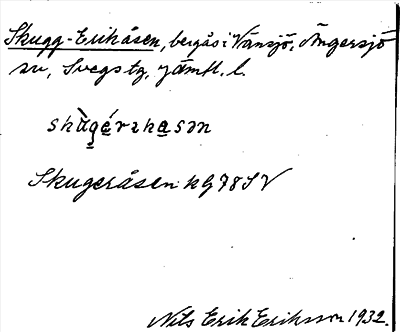 Skugg-Erikåsen, bergås i Vänsjö, Ängersjö
sn, Svegs tg, Jämtl. l.
skùgérɪkasən
Skugeråsen kG 78 SV
Nils Erik Eriksson 1932.